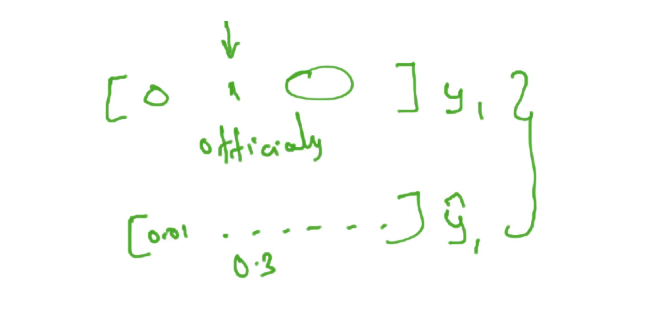 [ 0 1 0 ] y₁ }
officialy
[0.01 . . . - - . . ] ŷ₁
0.3